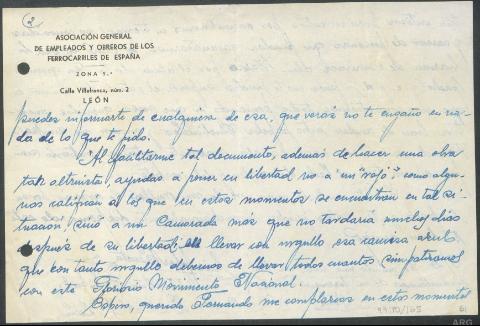 2
ASOCIACIÓN GENERAL
DE EMPLEADOS Y OBREROS DE LOS
FERROCARRILES DE ESPAÑA
ZONA 1.ª
Calle Villafranca, núm. 2
LEÓN
puedes informarte de cualquiera de esa, que verás no te engaño en na-
da de lo que te pido.
Al facilitarme tal documento, además de hacer una obra
tan altruista, ayudas a poner en libertad no a un "rojo", como algu-
nos califican a los que en estos momentos se encuentran en tal si-
tuación, sinó a un Camarada más que no tardaría muchos días
después de su libertad, en llevar con orgullo esa camisa azul,
que con tanto orgullo debemos de llevar todos cuantos simpatizamos
con este Glorioso Movimiento Nacional.
Espero, querido Fernando me complazcas en estos momentos
ARG